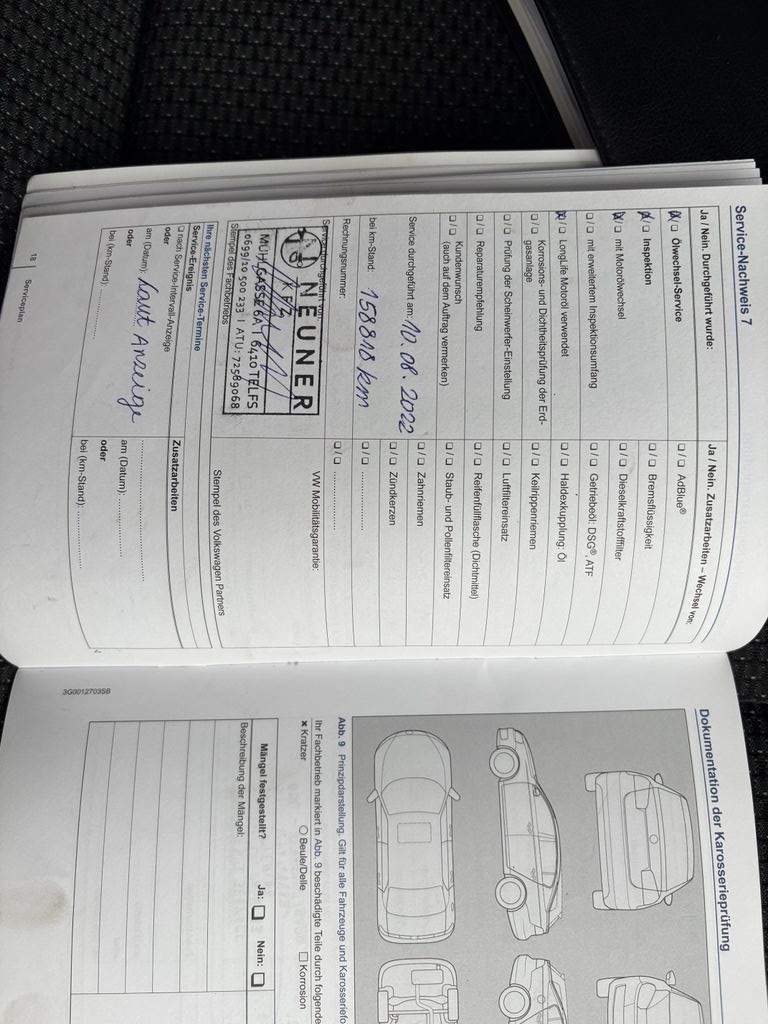 Service-Nachweis 7
Ja / Nein. Durchgeführt wurde:
☒ / ☐ Ölwechsel-Service
☒ / ☐ Inspektion
☒ / ☐ mit Motorölwechsel
☐ / ☐ mit erweitertem Inspektionsumfang
☒ / ☐ LongLife Motoröl verwendet
☐ / ☐ Korrosions- und Dichtheitsprüfung der Erd-
gasanlage
☐ / ☐ Prüfung der Scheinwerfer-Einstellung
☐ / ☐ Reparaturempfehlung
☐ / ☐ Kundenwunsch
(auch auf dem Auftrag vermerken)
Service durchgeführt am: 10.08.2022
bei km-Stand: 158818 km
Rechnungsnummer:
Service durchgeführt von:
NEUNER
KFZ
MÜHLGASSE 6A | 6410 TELFS
0699/10 500 233 | ATU: 72589068
Stempel des Fachbetriebs
Ja / Nein. Zusatzarbeiten – Wechsel von:
☐ / ☐ AdBlue®
☐ / ☐ Bremsflüssigkeit
☐ / ☐ Dieselkraftstofffilter
☐ / ☐ Getriebeöl: DSG®, ATF
☐ / ☐ Haldexkupplung: Öl
☐ / ☐ Keilrippenriemen
☐ / ☐ Luftfiltereinsatz
☐ / ☐ Reifenfüllflasche (Dichtmittel)
☐ / ☐ Staub- und Pollenfiltereinsatz
☐ / ☐ Zahnriemen
☐ / ☐ Zündkerzen
☐ / ☐ ....................
☐ / ☐
VW Mobilitätsgarantie:
Stempel des Volkswagen Partners
Ihre nächsten Service-Termine
Service-Ereignis
☐ nach Service-Intervall-Anzeige
oder
am (Datum): laut Anzeige
oder
bei (km-Stand): ............
Zusatzarbeiten
..............................
am (Datum): ....................
oder
bei (km-Stand): ....................
18 Serviceplan
Dokumentation der Karosserieprüfung
Abb. 9 Prinzipdarstellung. Gilt für alle Fahrzeuge und Karosseriefo
Ihr Fachbetrieb markiert in Abb. 9 beschädigte Teile durch folgende
× Kratzer ○ Beule/Delle ☐ Korrosion
Mängel festgestellt? Ja: ☐ Nein: ☐
Beschreibung der Mängel:
3G0012703SB